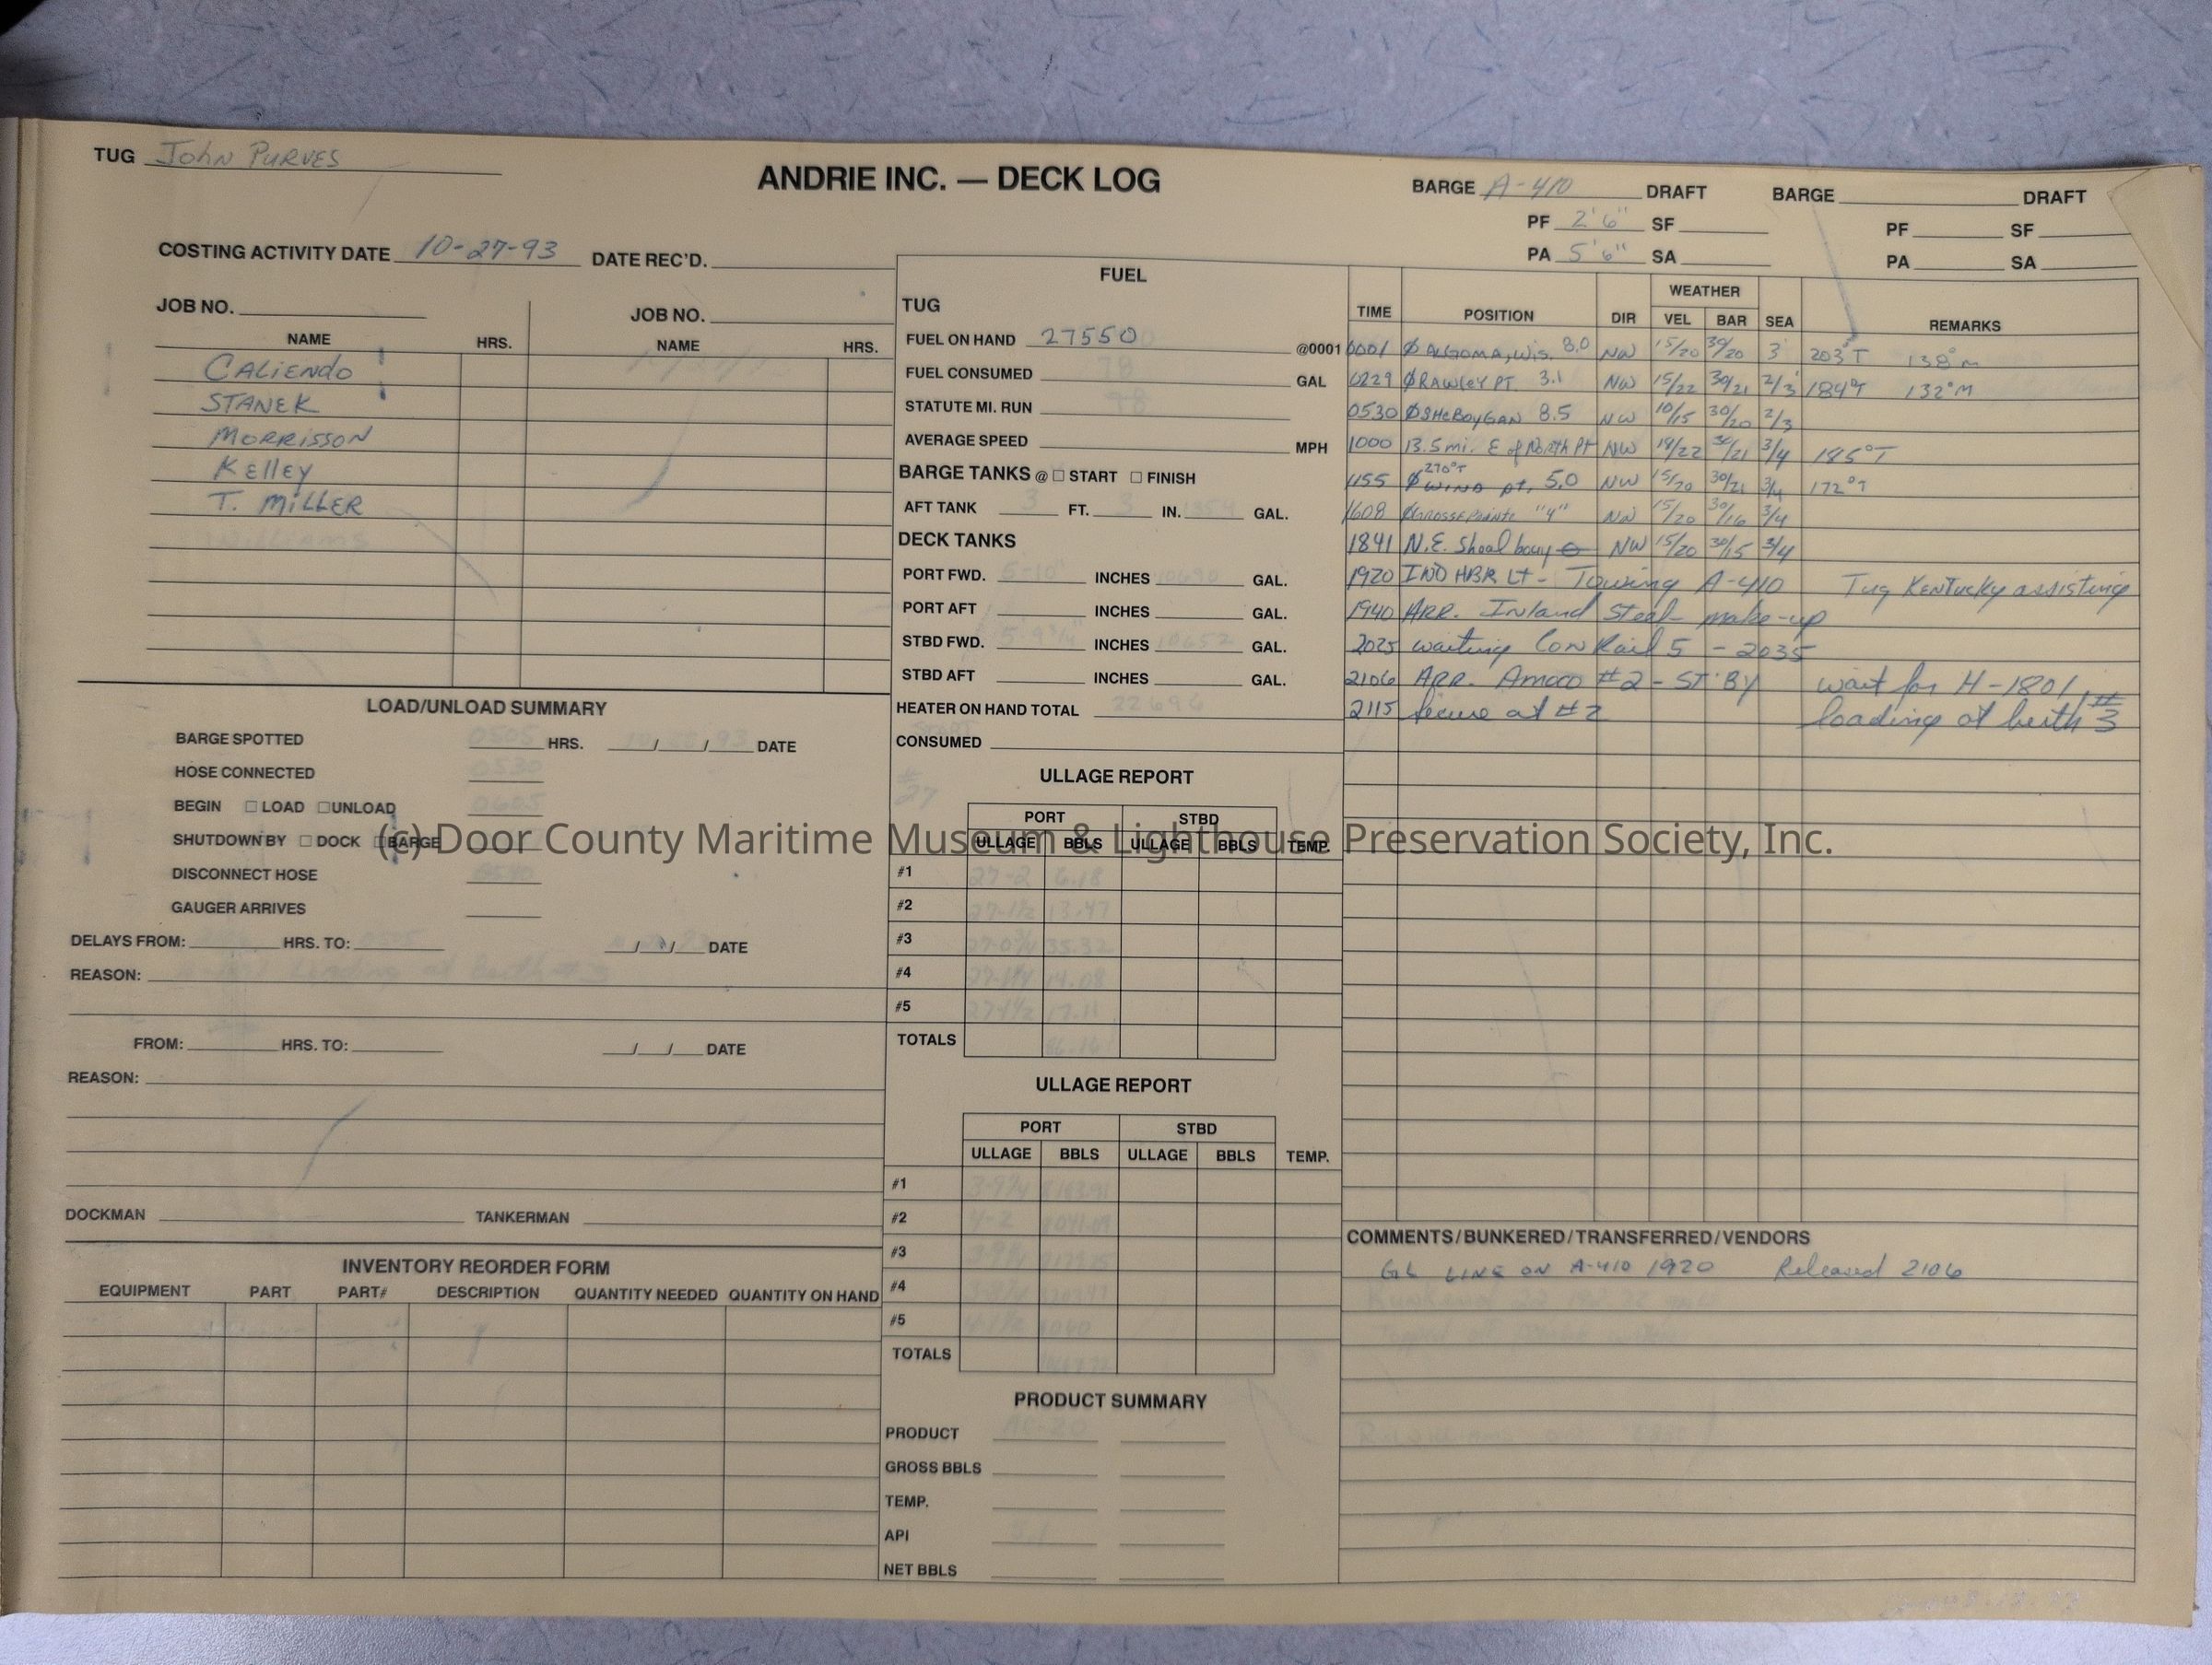 TUG John PURVES
ANDRIE INC. — DECK LOG
BARGE A-410 DRAFT BARGE DRAFT
PF 2'6" SF PF SF
PA 5'6" SA PA SA
COSTING ACTIVITY DATE 10-27-93 DATE REC'D.
JOB NO. JOB NO.
NAME HRS. NAME HRS.
CALIENDO
STANEK
MORRISSON
KElley
T. MILLER
LOAD/UNLOAD SUMMARY
BARGE SPOTTED HRS. / / DATE
HOSE CONNECTED
BEGIN □ LOAD □ UNLOAD
SHUTDOWN BY □ DOCK □ BARGE
DISCONNECT HOSE
GAUGER ARRIVES
DELAYS FROM: HRS. TO: / / DATE
REASON:
FROM: HRS. TO: / / DATE
REASON:
DOCKMAN TANKERMAN
INVENTORY REORDER FORM
EQUIPMENT PART PART# DESCRIPTION QUANTITY NEEDED QUANTITY ON HAND
FUEL
TUG
FUEL ON HAND 27550 @0001
FUEL CONSUMED GAL
STATUTE MI. RUN
AVERAGE SPEED MPH
BARGE TANKS @ □ START □ FINISH
AFT TANK FT. IN. GAL.
DECK TANKS
PORT FWD. INCHES GAL.
PORT AFT INCHES GAL.
STBD FWD. INCHES GAL.
STBD AFT INCHES GAL.
HEATER ON HAND TOTAL
CONSUMED
ULLAGE REPORT
PORT STBD
ULLAGE BBLS ULLAGE BBLS TEMP.
#1
#2
#3
#4
#5
TOTALS
ULLAGE REPORT
PORT STBD
ULLAGE BBLS ULLAGE BBLS TEMP.
#1
#2
#3
#4
#5
TOTALS
PRODUCT SUMMARY
PRODUCT
GROSS BBLS
TEMP.
API
NET BBLS
WEATHER
TIME POSITION DIR VEL BAR SEA REMARKS
0001 Ø ALGOMA, Wis. 8.0 NW 15/20 30/20 3' 203°T 138°M
0229 Ø RAWLEY PT. 3.1 NW 15/22 30/21 2/3' 184°T 132°M
0530 Ø SHEBOYGAN 8.5 NW 10/15 30/20 2/3
1000 13.5 mi. E of North Pt NW 18/22 30/21 3/4 185°T
1155 Ø 270°T WIND pt. 5.0 NW 15/20 30/21 3/4 172°T
1608 Ø GROSSE Pointe "4" NW 15/20 30/16 3/4
1841 N.E. Shoal bouy NW 15/20 30/15 3/4
1920 IND HBR Lt - Towing A-410 Tug Kentucky assisting
1940 ARR. Inland Steel make-up
2025 waiting ConRail 5 - 2035
2106 ARR. Amoco #2 - ST'BY wait for H-1801
2115 secure at #2 loading at berth #3
COMMENTS/BUNKERED/TRANSFERRED/VENDORS
GL LINE ON A-410 1920 Released 2106
(c) Door County Maritime Museum & Lighthouse Preservation Society, Inc.